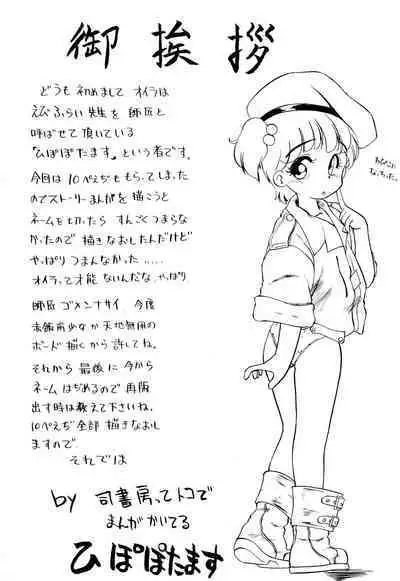 御挨拶
どうも 初めまして オイラは
えむふらい先生を 師匠と
呼ばせて頂いている
「ひぽぽたます」という者です。
今回は 10ぺえぢももらってしまった
のでストーリーまんがを描こうと
ネームを切ったら すんごくつまらな
かったので 描きなおしたんだけど
やっぱりつまんなかった .....
オイラって才能ないんだな やっぱり
師匠 ゴメンナサイ 今度
天地無用の
ボード描くから許してね。
それから 最後に 今から
ネームはぢめるので 再版
出す時は教えて下さいね。
10ぺえぢ全部 描きなおし
ますので。
それでは
by 司書房ってトコで
まんがかいてる
ひぽぽたます
なっちった。